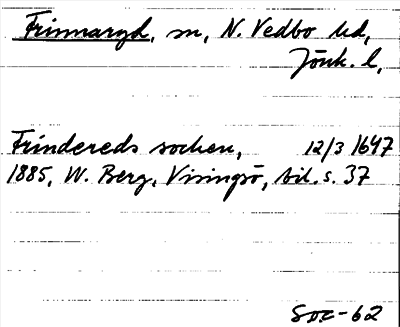 Frinnaryd, sn, N. Vedbo hd,
Jönk. l.
Frindereds socken, 12/3 1647
1885, W. Berg, Visingsö, bil. s. 37
SOC-62